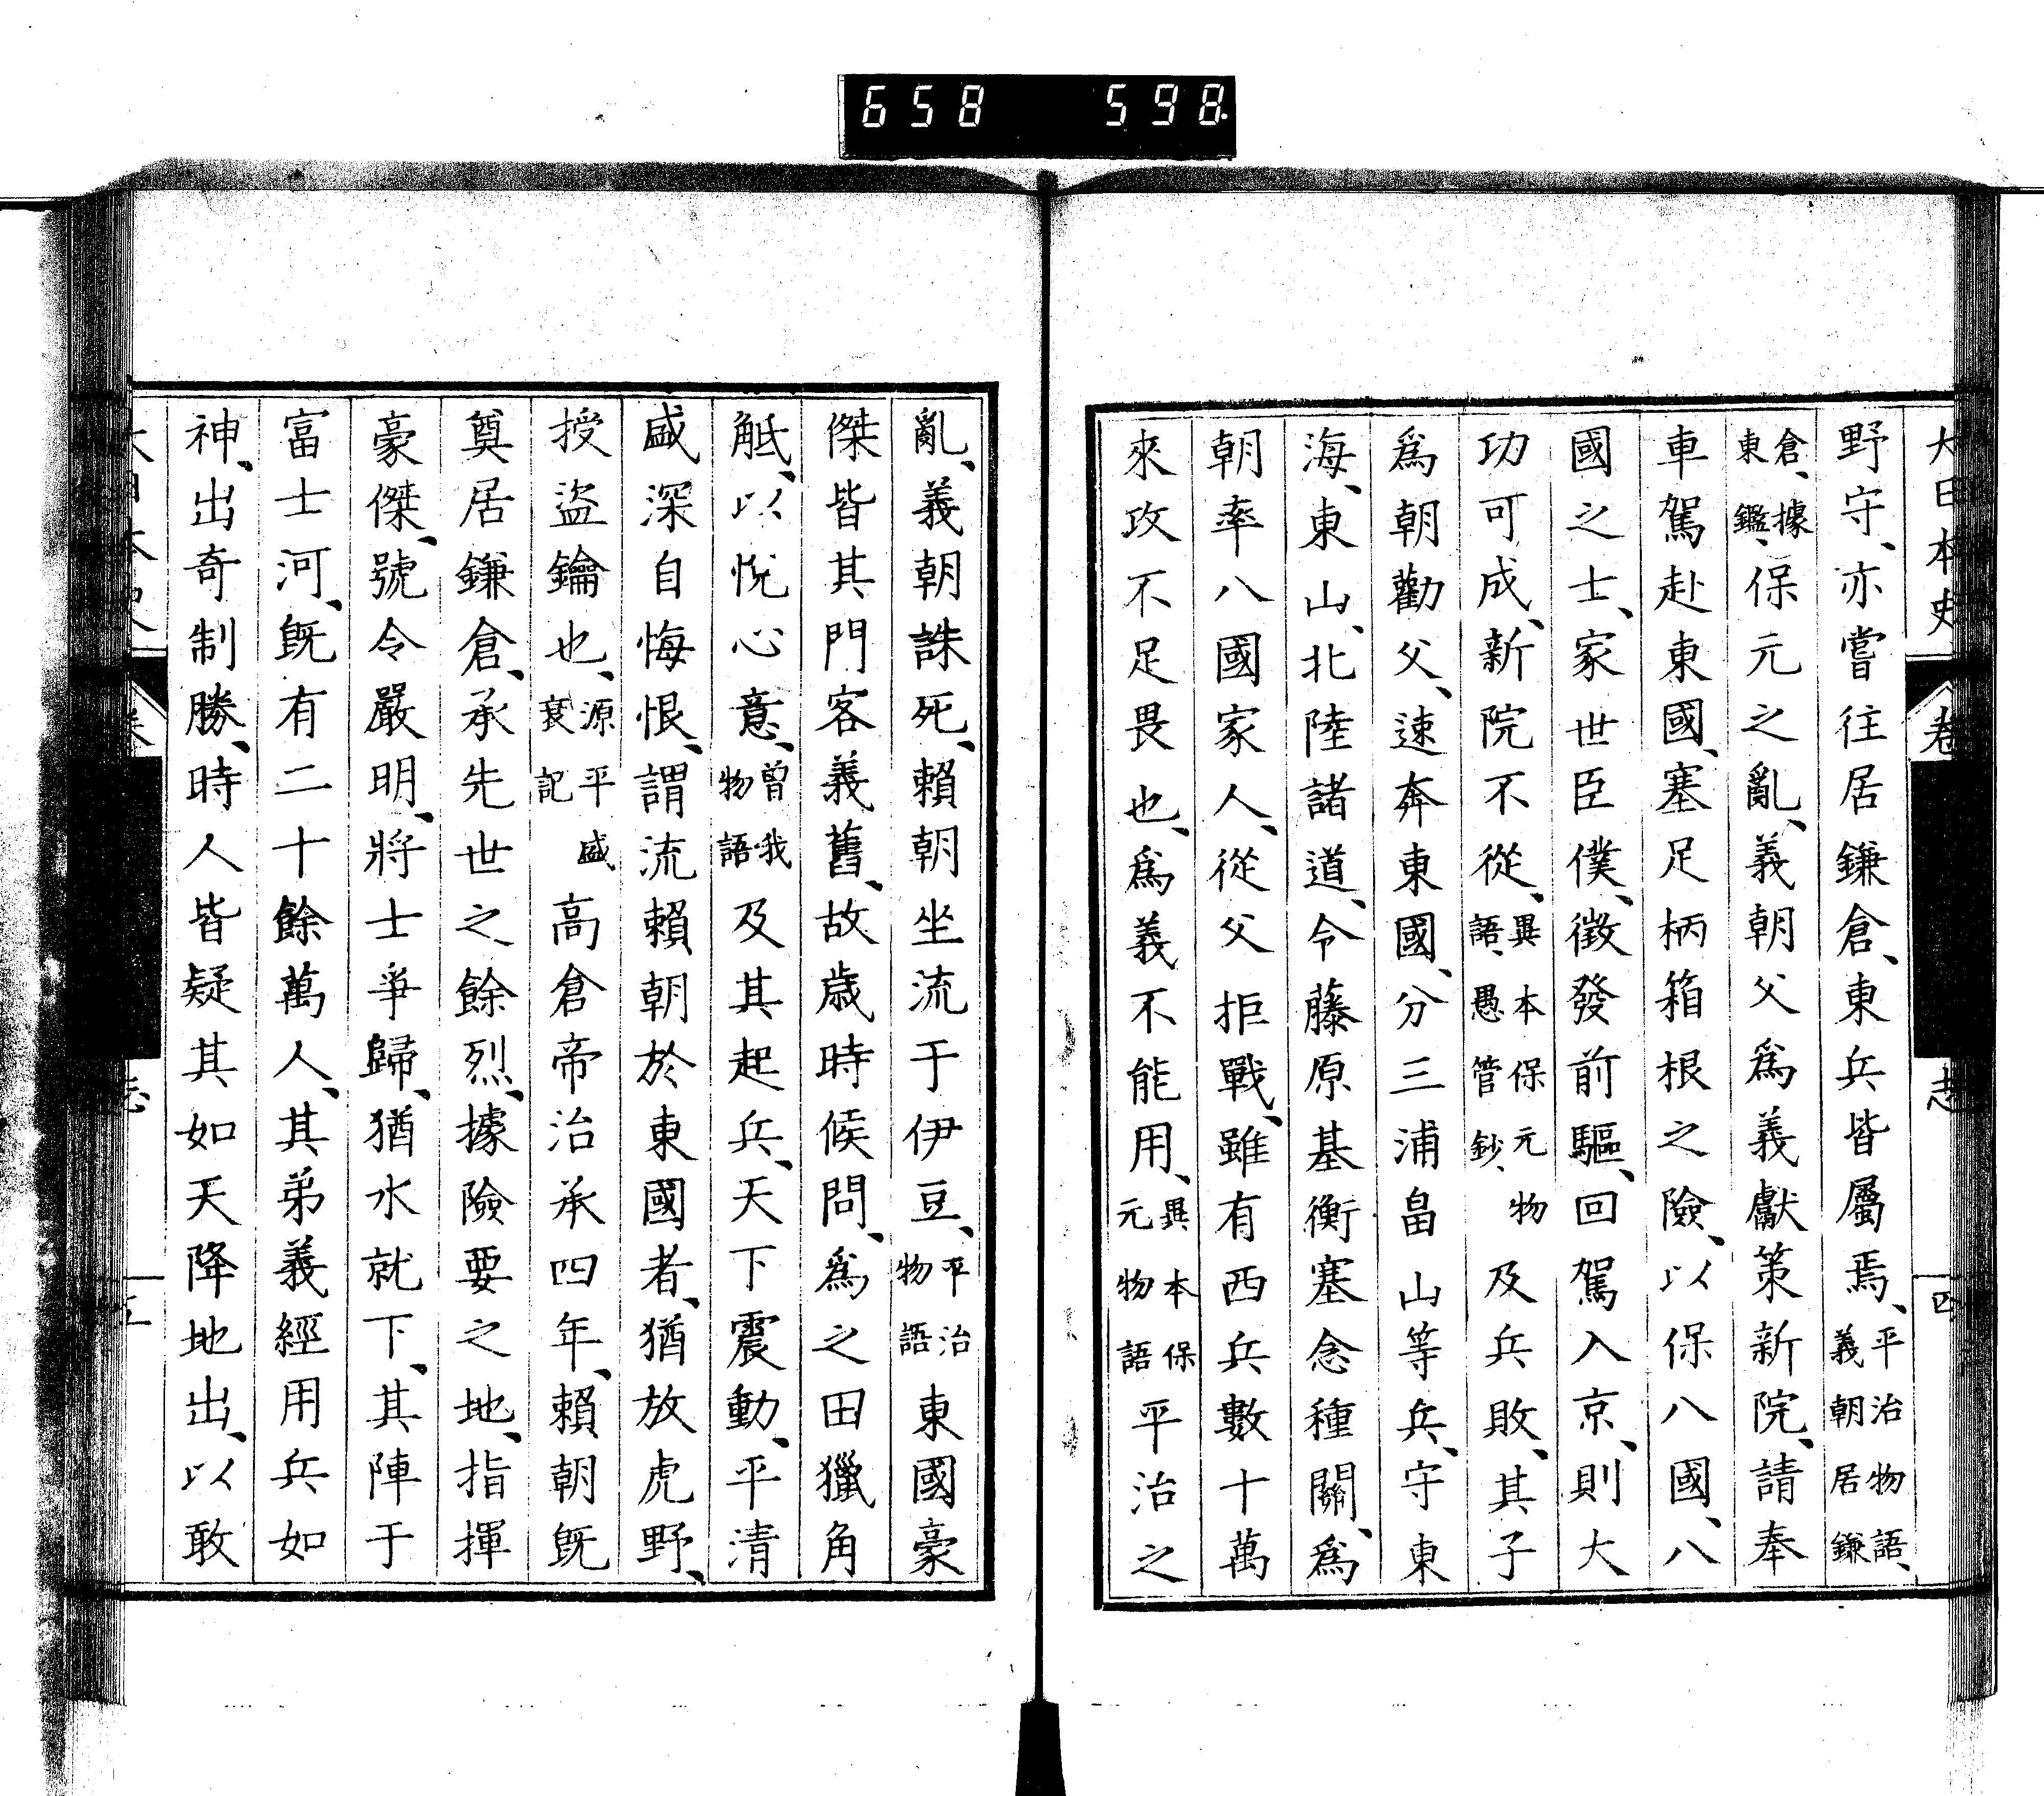 658 598
大日本史 卷 志 四
野守、亦嘗往居鎌倉、東兵皆屬焉、平治物語、義朝居鎌
倉、據東鑑、保元之亂、義朝父爲義獻策新院、請奉
車駕赴東國、塞足柄箱根之險、以保八國、八
國之士、家世臣僕、徵發前驅、回駕入京、則大
功可成、新院不從、異本保元物語、愚管鈔、及兵敗、其子
爲朝勸父、速奔東國、分三浦畠山等兵、守東
海、東山、北陸諸道、令藤原基衡塞念種關、爲
朝率八國家人、從父拒戰、雖有西兵數十萬
來攻不足畏也、爲義不能用、異本保元物語平治之
亂、義朝誅死、賴朝坐流于伊豆、平治物語東國豪
傑皆其門客義舊、故歲時候問、爲之田獵角
觝、以悅心意、曾我物語及其起兵、天下震動、平清
盛深自悔恨、謂流賴朝於東國者、猶放虎野、
授盜鑰也、源平盛衰記高倉帝治承四年、賴朝既
奠居鎌倉、承先世之餘烈、據險要之地、指揮
豪傑、號令嚴明、將士爭歸、猶水就下、其陣于
富士河、既有二十餘萬人、其弟義經用兵如
神、出奇制勝、時人皆疑其如天降地出、以敢